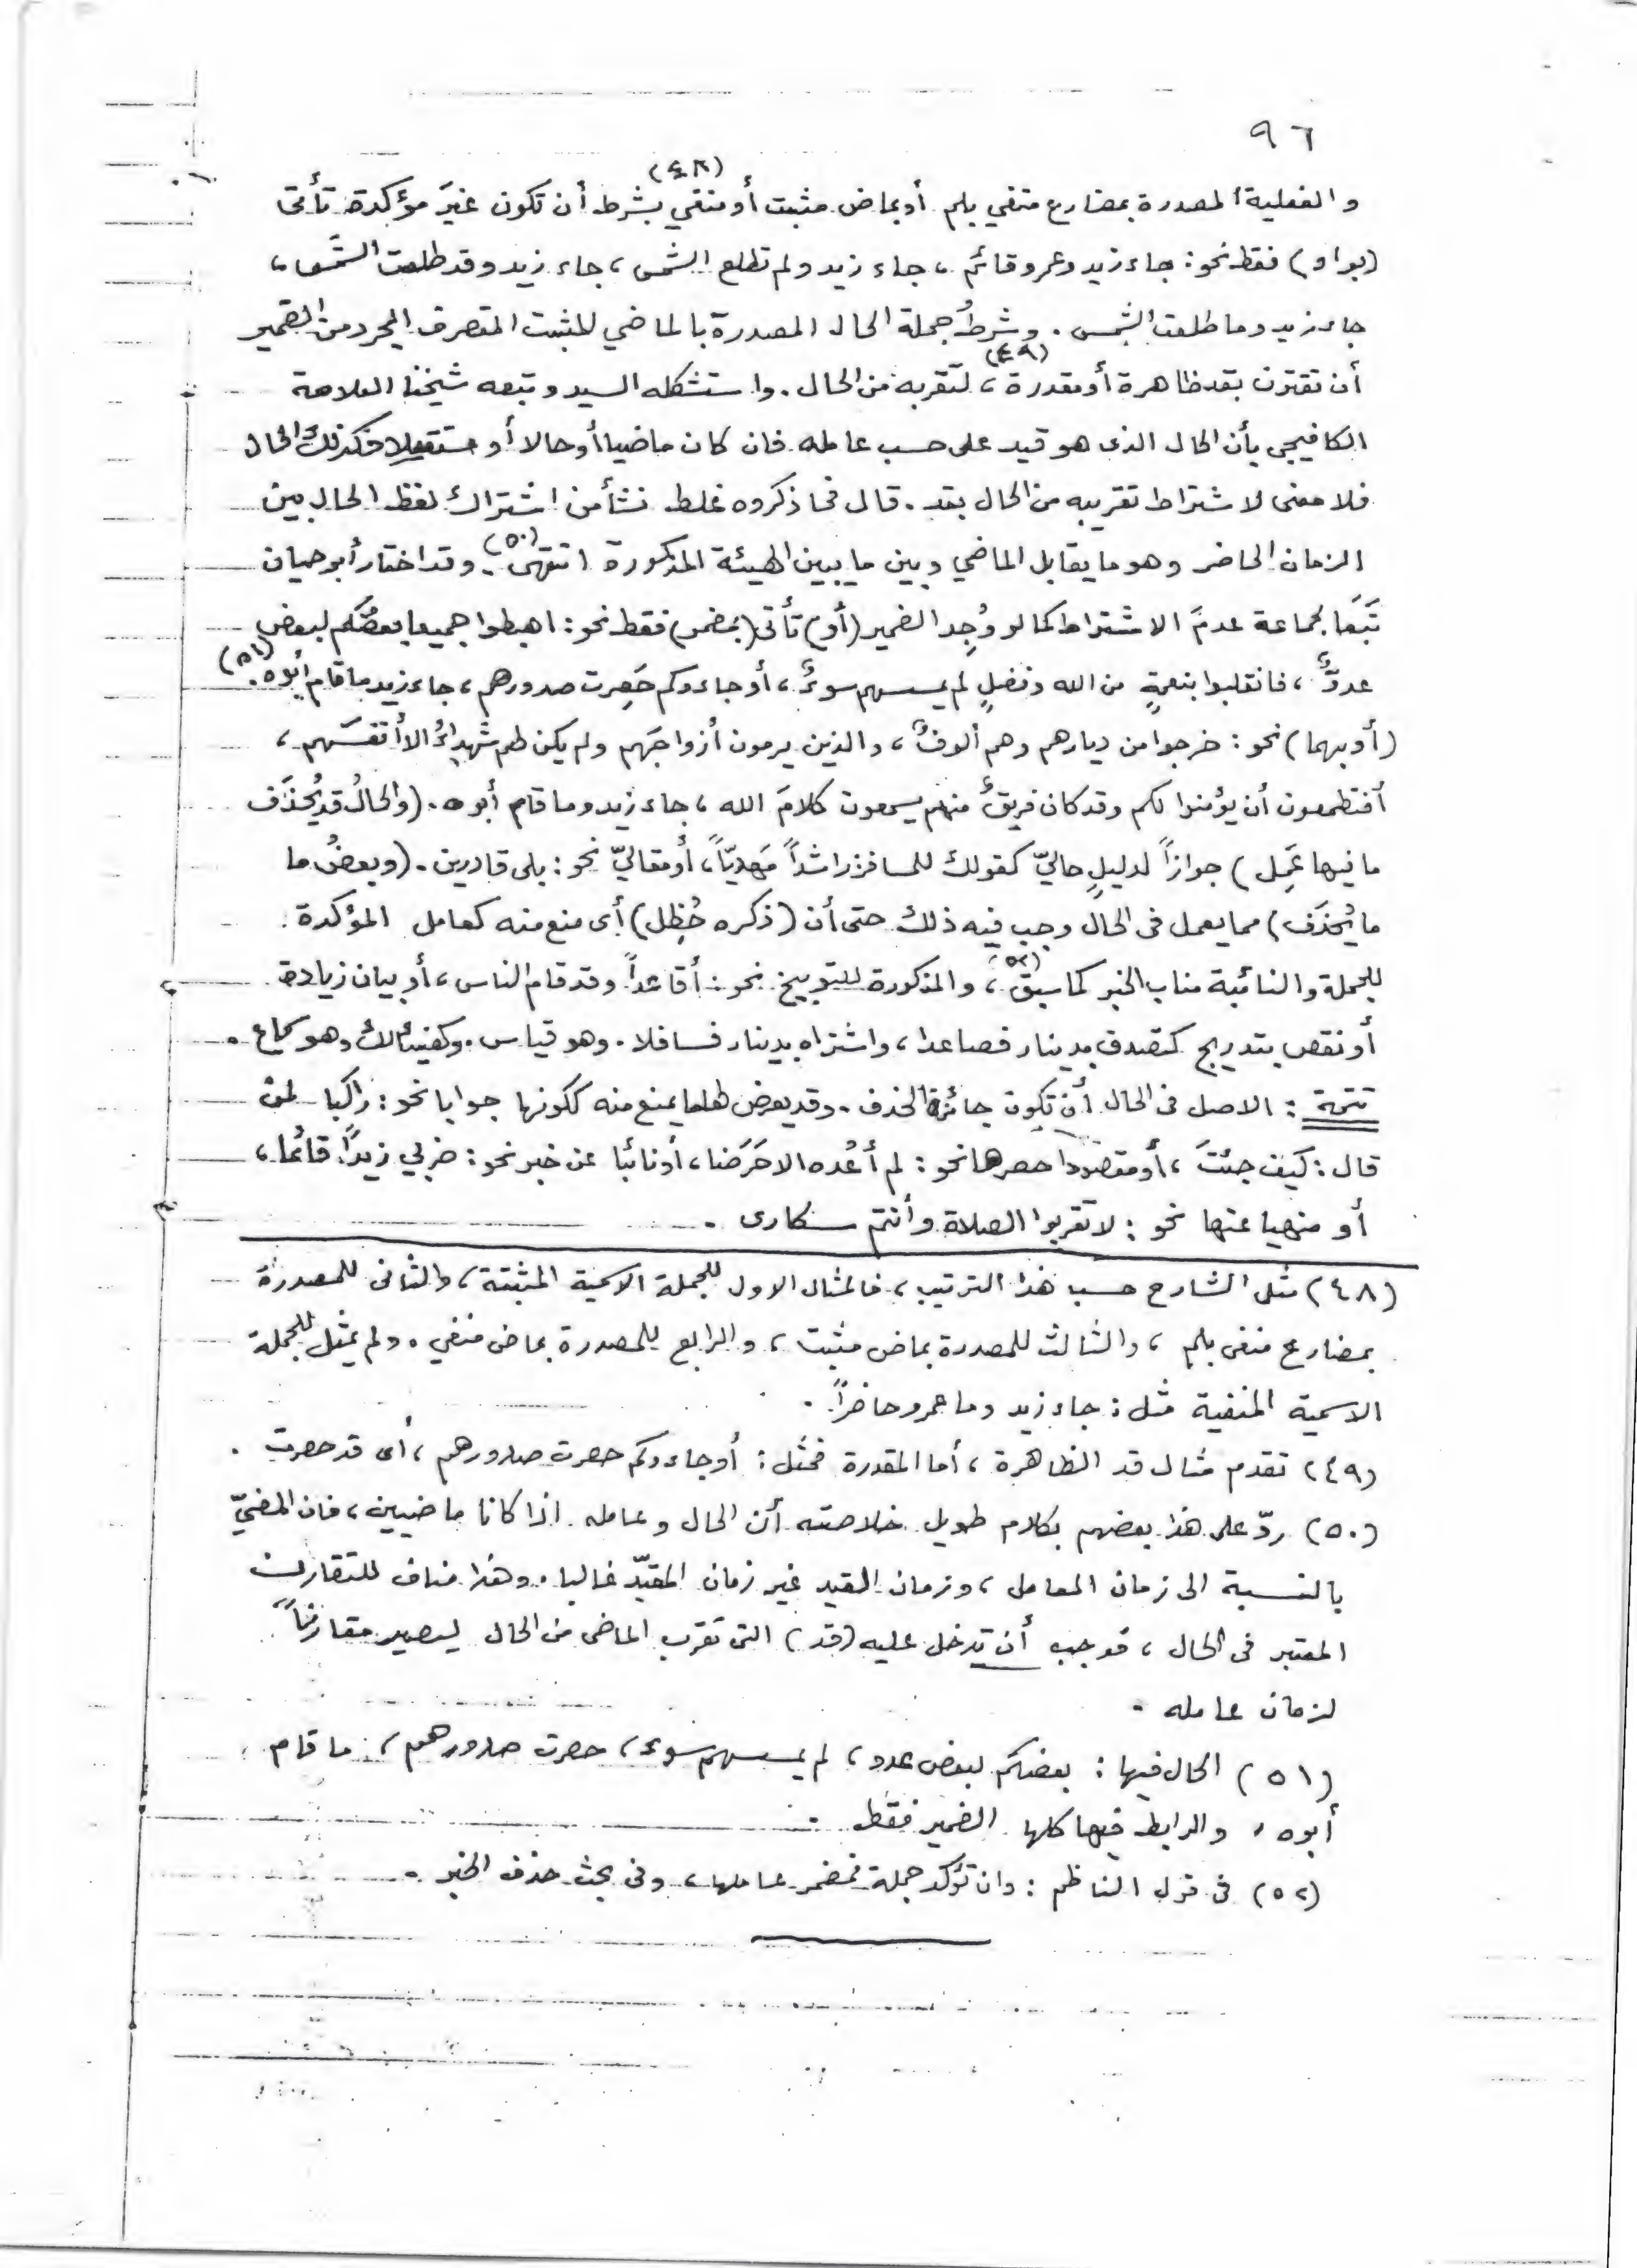 ٩٦
(٤٨)
والفعلية المصدرة بمضارع منفي بلم أو بماض مثبت أو منفي بشرط أن تكون غيرَ مؤكدة تأتى
(بواو) فقط نحو: جاء زيد وعمرو قائم، جاء زيد ولم تطلع الشمس، جاء زيد وقد طلعت الشمس،
جاء زيد وما طلعت الشمس. وشرطُ جملة الحال المصدرة بالماضي المثبت المتصرف المجرد من الضمير
أن تقترن بقد ظاهرة أو مقدرة (٤٩)، لتقربه من الحال. واستشكله السيد وتبعه شيخنا العلامة
الكافيجي بأن الحال الذى هو قيد على حسب عامله فان كان ماضيا أو حالا أو مستقبلا فكذلك الحال
فلا معنى لاشتراط تقريبه من الحال بقد. قال فما ذكروه غلط نشأ من اشتراك لفظ الحال بين
الزمان الحاضر وهو ما يقابل الماضي وبين ما يبين الهيئة المذكورة انتهى (٥٠). وقد اختار أبو حيان
تَبَعًا لجماعة عدمَ الاشتراط كما لو وُجِد الضمير (أو) تأتى (بمضمر) فقط نحو: اهبطوا جميعا بعضُكم لبعض
عدوٌّ، فانقلبوا بنعمةٍ من الله وفضلٍ لم يمسسهم سوءٌ، أو جاءوكم حَصِرت صدورهم، جاء زيد ما قام أبوه. (٥١)
(أو بهما) نحو: خرجوا من ديارهم وهم ألوفٌ، والذين يرمون أزواجَهم ولم يكن لهم شهداءُ الا أنفسَهم،
أفتطمعون أن يؤمنوا لكم وقد كان فريقٌ منهم يسمعون كلامَ الله، جاء زيد وما قام أبوه. (والحالُ قد يُحذَف
ما فيها عَمِل) جوازاً لدليلٍ حاليّ كقولك للمسافر: راشداً مَهديّاً، أو مقاليّ نحو: بلى قادرين. (وبعضُ ما
ما يُحذَف) مما يعمل فى الحال وجب فيه ذلك حتى أن (ذكره حُظِل) أى منع منه كعامل المؤكدة
للجملة والنائبة مناب الخبر كما سبق (٥٢)، والمذكورة للتوبيخ نحو: أقاعداً وقد قام الناس، أو بيان زيادة
أو نقص بتدريج كتصدق بدينار فصاعدا، واشتراه بدينار فسافلا. وهو قياس. وكهنيئا لك وهو سماع.
تتمة: الاصل فى الحال أن تكون جائزة الحذف. وقد يعرض لها ما يمنع منه ككونها جوابا نحو: راكبا لمن
قال: كيف جئتَ، أو مقصودا حصرها نحو: لم أعُده الا حَرَضا، أو نائبا عن خبر نحو: ضربي زيدًا قائما،
أو منهيا عنها نحو: لا تقربوا الصلاة وأنتم سكارى.
(٤٨) مثل الشارح حسب هذا الترتيب، فالمثال الاول للجملة الاسمية المثبتة، والثانى للمصدرة
بمضارع منفى بلم، والثالث للمصدرة بماض مثبت، والرابع للمصدرة بماض منفي. ولم يمثل للجملة
الاسمية المنفية مثل: جاء زيد وما عمرو حاضراً.
(٤٩) تقدم مثال قد الظاهرة، أما المقدرة فمثل: أو جاءوكم حصرت صدورهم، أى قد حصرت.
(٥٠) ردّ على هذا بعضهم بكلام طويل خلاصته أن الحال وعامله اذا كانا ماضيين، فان المضيّ
بالنسبة الى زمان العامل، وزمان القيد غير زمان المقيّد غالبا. وهذا مناف للتقارن
المعتبر فى الحال، فوجب أن تدخل عليه (قد) التى تقرب الماضى من الحال ليصير مقارناً
لزمان عامله.
(٥١) الحال فيها: بعضكم لبعض عدو، لم يمسسهم سوء، حصرت صدورهم، ما قام
أبوه، والرابط فيها كلها الضمير فقط.
(٥٢) فى قول الناظم: وان تؤكد جملة فمضمر عاملها، وفى بحث حذف الخبر.